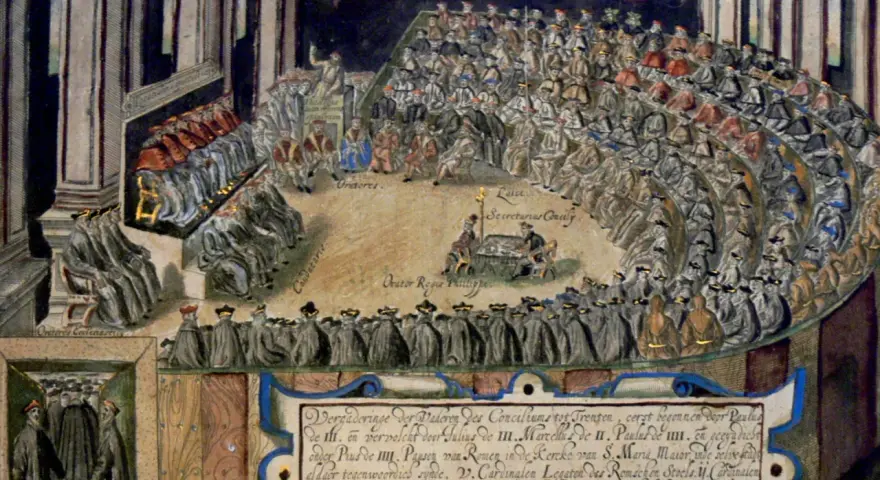 Oratores.
Laici.
Secretarius Concilij
Orator Regis Philippi.
Vergaderinge der Vaderen des Conciliums tot Trenten, eerst begonnen door Paulus
de III. en vervolcht door Julius de III. Marcellus de II. Paulus de IIII. en geeyndicht
onder Pius de IIII. Pausen van Romen in de Kercke van S. Maria Maior, inde selve
aldaer tegenwoordich synde, V. Cardinalen Legaten des Roomschen Stoels, IJ Cardinalen